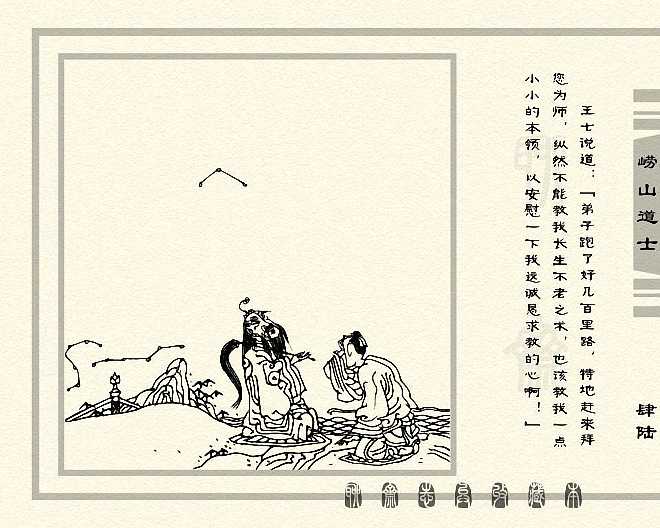 崂山道士
肆陆
王士说道：「弟子跑了好几百里路，特地赶来拜
您为师，纵然不能教我长生不老之术，也该教我一点
小小的本领，以安慰一下我远诚恳求教的心啊！」